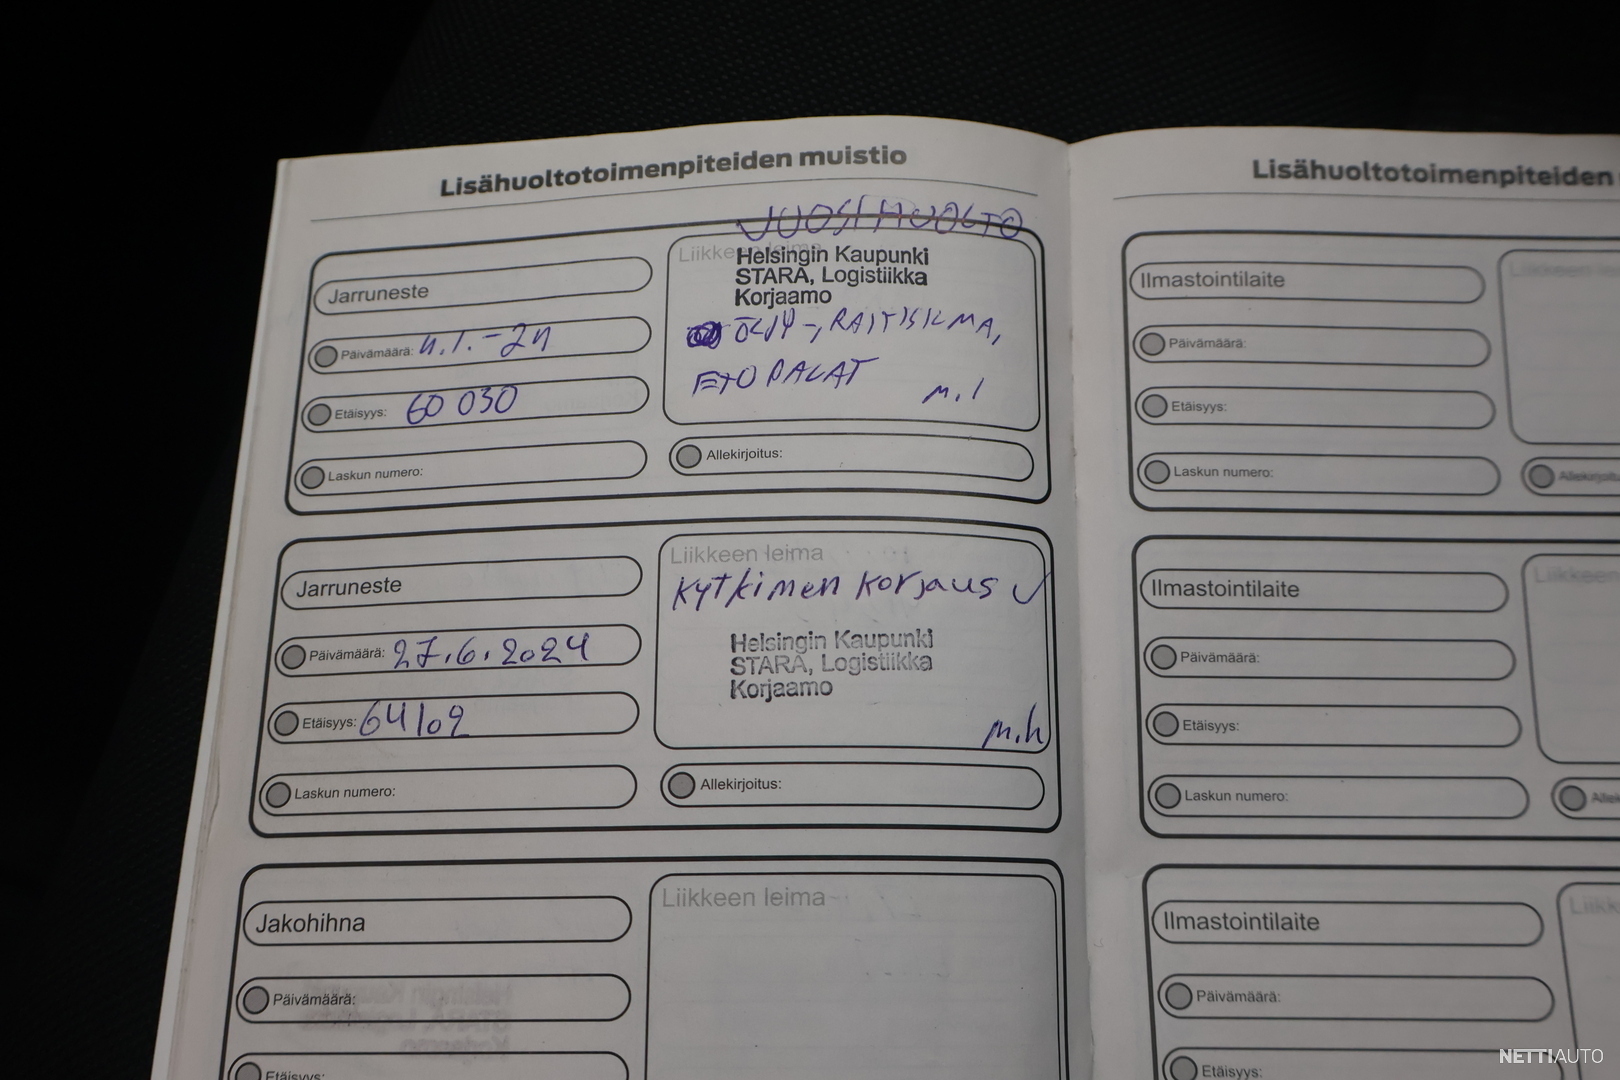 Lisähuoltotoimenpiteiden muistio
VUOSIHUOLTO
Liikkeen leima
Helsingin Kaupunki
STARA, Logistiikka
Korjaamo
ÖLJY-, RAITISILMA,
ETU PALAT
m.l
Jarruneste
Päivämäärä: 4.1.-24
Etäisyys: 60 030
Laskun numero:
Allekirjoitus:
Jarruneste
Päivämäärä: 27.6.2024
Etäisyys: 64109
Laskun numero:
Liikkeen leima
Kytkimen korjaus ✓
Helsingin Kaupunki
STARA, Logistiikka
Korjaamo
m.h
Allekirjoitus:
Jakohihna
Päivämäärä:
Etäisyys:
Liikkeen leima
Lisähuoltotoimenpiteiden
Ilmastointilaite
Päivämäärä:
Etäisyys:
Laskun numero:
Liikkeen leima
Allekirjoitu
Ilmastointilaite
Päivämäärä:
Etäisyys:
Laskun numero:
Liikkeen
Allek
Ilmastointilaite
Päivämäärä:
Etäisyys:
Liikk
NETTIAUTO